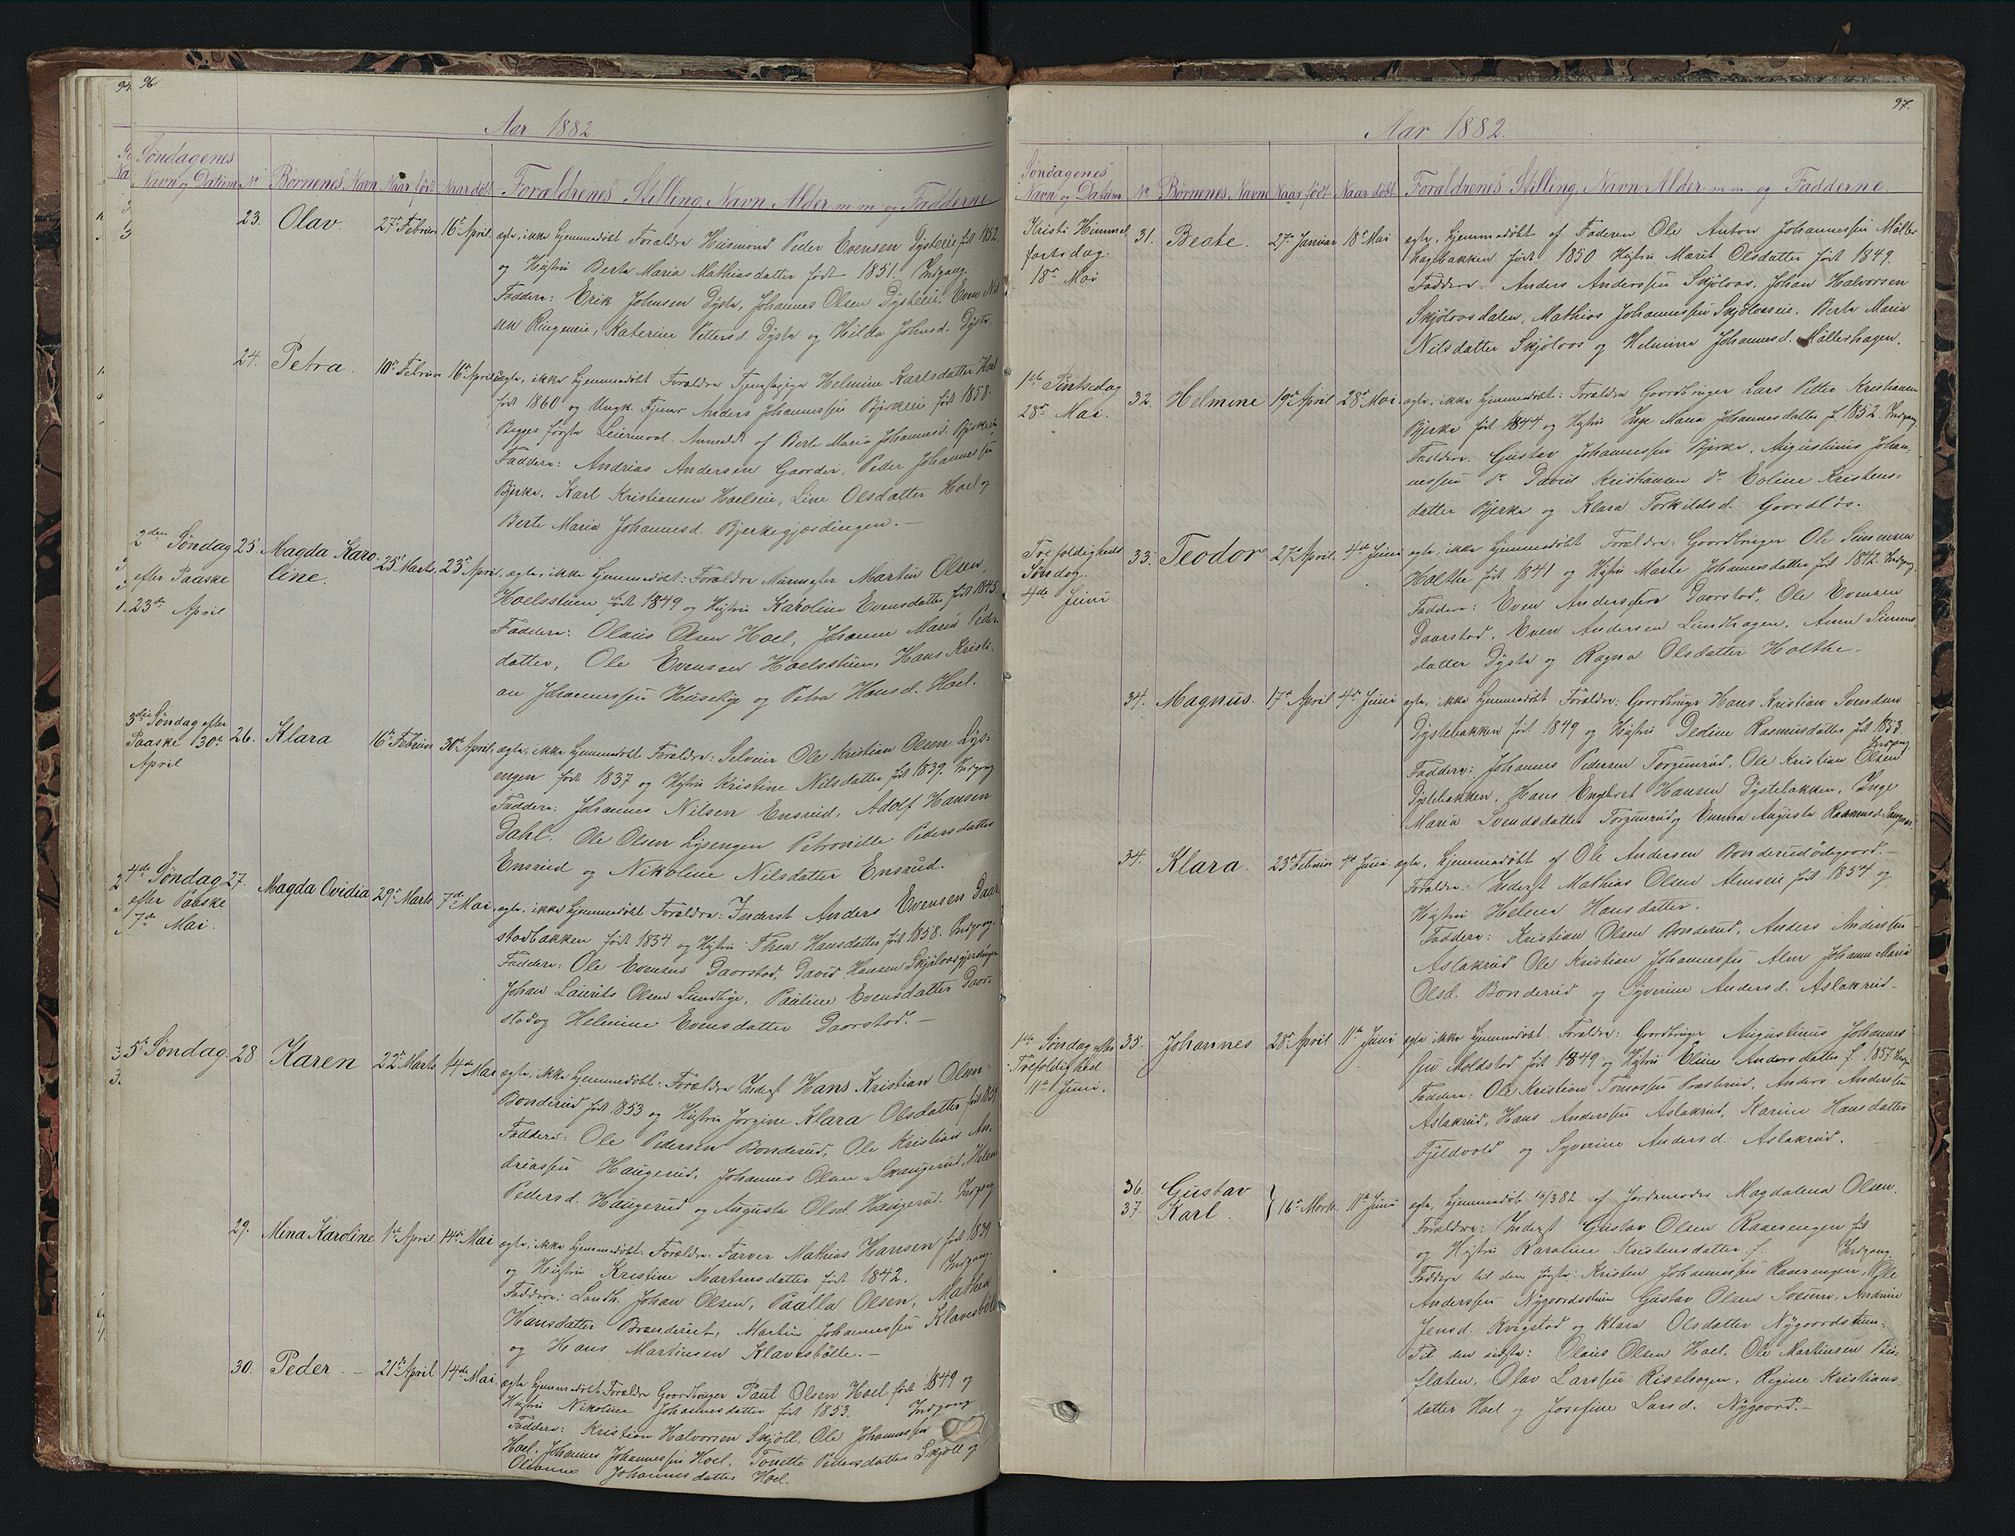 94 96.
Aar 1882.
Søndagenes
Navn og Datum No Børnenes Navn Naar født Naar døbt Forældrenes Stilling, Navn, Alder m. m. og Fadderne
23. Olav. 27de Februar 16de April ægte, ikke hjemmedøbt Forældre Husmand Peder Evensen Dysteeie født 1852
og Hustru Berte Maria Mathiasdatter født 1851. Indgang.
Faddere: Erik Johnsen Dyste, Johannes Olsen Dysteeie, Even Nil
sen Ringeneie, Katerine Pettersd. Dyste og Hilda Johnsd. Dyste.
24. Petra. 10de Februar 16de April uægte, ikke hjemmedøbt Forældre Tjenestepige Helmine Karlsdatter Hoel
født 1860 og Ungk. Tjener Anders Johannessen Bjerkeeie født 1858.
Begges første Leiermaal. Anmeldt af Berte Maria Johannesd. Bjerkeeie
Faddere: Andrias Andersen Gaarder, Peder Johannessen
Bjerke, Karl Kristiansen Hoelseie, Line Olsdatter Hoel og
Berte Maria Johannesd. Bjerkegjærdingen. —
2den Søndag 25 Magda Karo- 25de Marts, 23de April, ægte, ikke hjemmedøbt: Forældre Murmester Martin Olsen
efter Paaske line. Hoelsstuen født 1849 og Hustru Karoline Evensdatter født 1845.
23de April Faddere: Olaus Olsen Hoel, Johanne Maria Peder
datter, Ole Evensen Hoelsstuen, Hans Kristi-
an Johannessen Huseby og Petra Hansd. Hoel.
3die Søndag efter
Paaske 30de 26. Klara 16de Februar 30de April, ægte, ikke hjemmedøbt Forældre: Selveier Ole Kristian Olsen Lys-
April engen født 1837 og Hustru Kristine Nilsdatter født 1839. Indgang
Faddere: Johannes Nilsen Ensrud, Adolf Hansen
Dahl, Ole Olsen Lysengen Petronille Pedersdatter
Ensrud og Nikoline Nilsdatter Ensrud.
4de Søndag 27. Magda Ovidia 29de Marts 7de Mai, ægte, ikke hjemmedøbt Forældre: Inderst Anders Evensen Daar
efter Paaske stadbakken født 1834 og Hustru Thea Hansdatter født 1858. Indgang.
7de Mai. Faddere: Ole Evensen Daarstad, David Hansen Skjølaasgjerdingen
Johan Laurits Olsen Sundbye, Pauline Evensdatter Daar-
stad og Helmine Evensdatter Daarstad. —
5te Søndag. 28. Karen 22de Marts 14de Mai ægte, ikke hjemmedøbt: Forældre Inderst Hans Kristian Olsen
Bonderud født 1853 og Hustru Jorgine Klara Olsdatter født 1859.
Faddere: Ole Pedersen Bonderud, Ole Kristian An-
driassen Haugerud, Johannes Olsen Svangerud, Helene
Pedersd. Haugerud og Augusta Olsd. Haugerud. Indgang
29. Mina Karoline 1ste April 14de Mai ægte, ikke hjemmedøbt: Forældre: Farver Mathias Hansen født 1839
og Hustru Kristine Martinsdatter født 1842. Indgang.
Faddere: Landh. Johan Olsen, Paulla Olsen, Mathea
Hansdatter Brenderiet, Martin Johannessen Klavesbølle
og Hans Martinsen Klavesbølle. —
30. Peder. — 21de April 14de Mai. ægte hjemmedøbt Forældre Gaardbruger Paul Olsen Hoel født 1849 og
Hustru Nikoline Johannesdatter født 1853. Indgang
Faddere: Kristian Halvorsen Skjøll, Ole Johannessen
Hoel, Johannes Johannessen Hoel, Tonette Pedersdatter Skjøll og
Oleanne Johannesdatter Hoel.
97.
Aar 1882.
Søndagenes
Navn og Datum No Børnenes Navne Naar født Naar døbt Forældrenes Stilling Navn Alder m m og Fadderne.
Kristi Himmel 31. Beate. 27de Januar 18de Mai ægte, hjemmedøbt af Faderen Ole Anton Johannessen Møller
fartsdag. hagbakken født 1850 Hustru Marit Olsdatter født 1849.
18de Mai Faddere: Anders Anderssen Skjølaas, Johan Halvorsen
Skjølaasdalen, Mathias Johannessen Skjølaaseie, Berte Maria
Nilsdatter Skjølaas og Helmine Johannesd. Møllerhagen.
1ste Pintsedag 32. Helmine 19de April 28de Mai ægte, ikke hjemmedøbt: Forældre Gaardbruger Lars Petter Kristiansen
28de Mai. Bjerke født 1844 og Hustru Inge Maria Johannesdatter f. 1852 Indgang
Faddere: Gustav Johannessen Bjerke, Augustinus Johan-
nessen do David Kristiansen do Eoline Kristens-
datter Bjerke og Klara Torkildsd. Gaardløs.
Trefoldigheds 33. Teodor 27de April. 4de Juni ægte, ikke hjemmedøbt Forældre: Gaardbruger Ole Simensen
Søndag. Holthe født 1841 og Hustru Marte Johannesdatter født 1842. Indgang
4de Juni Faddere: Even Anderssen Daarstad, Ole Evensen
Daarstad, Even Andersen Lundhagen, Anne Simens-
datter Dyste og Ragna Olsdatter Holthe.
34. Magnus. 17de April 4de Juni ægte, ikke hjemmedøbt Forældre: Gaardbruger Hans Kristian Svendsen
Dystebakken født 1849 og Hustru Dedine Rasmusdatter født 1853
Indgang
Faddere: Johannes Pedersen Torgunrud, Ole Kristian Olsen
Dystebakken, Hans Engebret Hansen Dystebakken, Inge
Maria Svendsdatter Torgunrud og Emma Augusta Rasmusd.
34. Klara. 23de Februar 4de Juni. ægte, hjemmedøbt af Ole Andersen Bonderudødegaard. —
Forældre: Inderst Mathias Olsen Almseie født 1854 og
Hustru Helena Hansdatter.
Faddere: Kristian Olsen Bonderud, Anders Anderssen
Aslakrud Ole Kristian Johannessen Alm Johanne Maria
Olsd. Bonderud og Syverine Andersd. Aslakrud-
1ste Søndag efter 35. Johannes 28de April 11te Juni ægte ikke hjemmedøbt. Forældre: Gaardbruger Augustinus Johannes
Trefoldighed sen Aoldstad født 1849 og Hustru Eline Andersdatter f. 1857 Indg.
11te Juni. Faddere: Ole Kristian Tomassen Præsterud, Anders Anderssen
Aslakrud, Hans Anderssen Aslakrud, Karine Hansdatter
Fjeldvold og Syverine Andersd. Aslakrud.
36. Gustav
37. Karl. } 16de Marts. 11te Juni ægte, hjemmedøbt 16/3 82 af Jordemoder Magdalena Olsen.
Forældre: Inderst Gustav Olsen Raaerengen født
og Hustru Karoline Kristensdatter f. Indgang.
Faddere til den første: Kristen Johannessen Raaerengen, Ole
Anderssen Nygaardsstuen Gustav Olsen Sveum, Andrine
Jensd. Kvigstad og Klara Olsdatter Nygaardstuen-
Til den sidste: Olaus Olsen Hoel, Ole Martinsen Bis-
flaten, Olav Larssen Riselhagen, Regine Kristians-
datter Hoel og Josefine Larsd. Nygaard. —